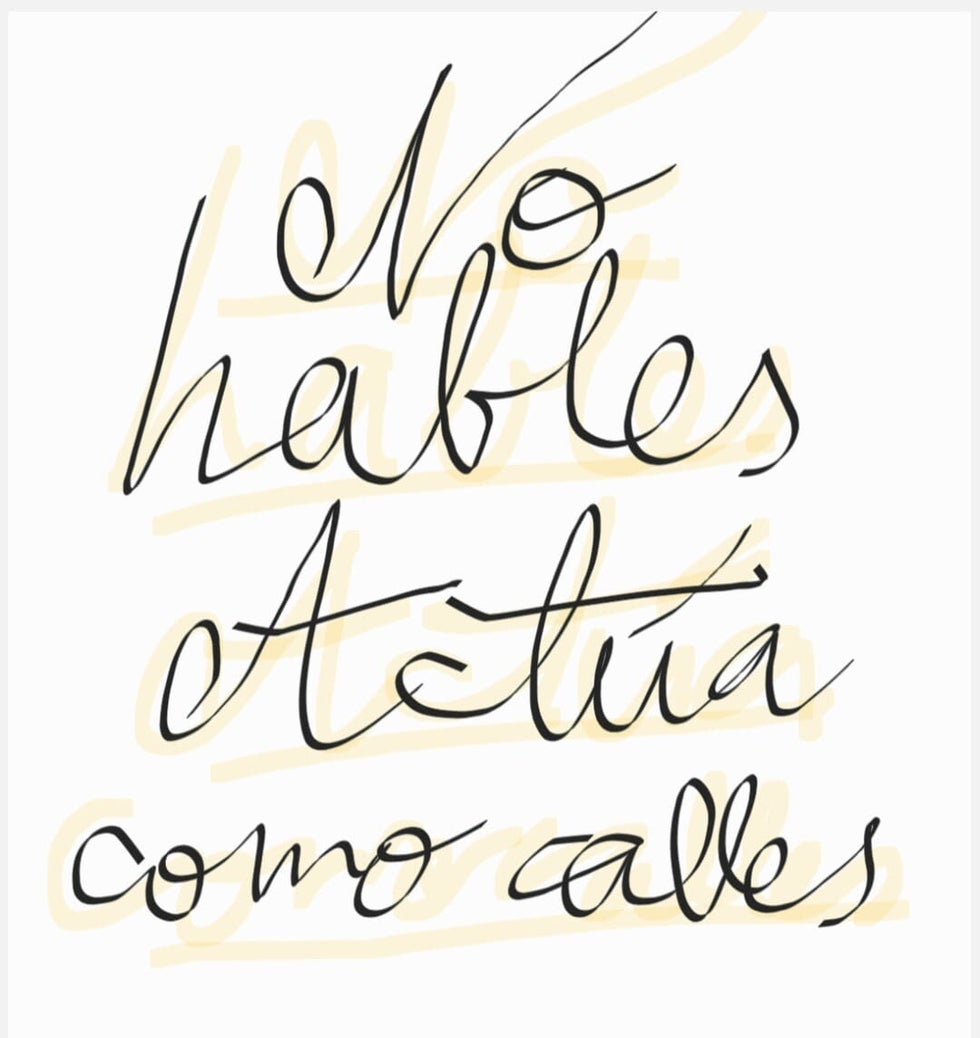 No
hables
Actúa
como calles